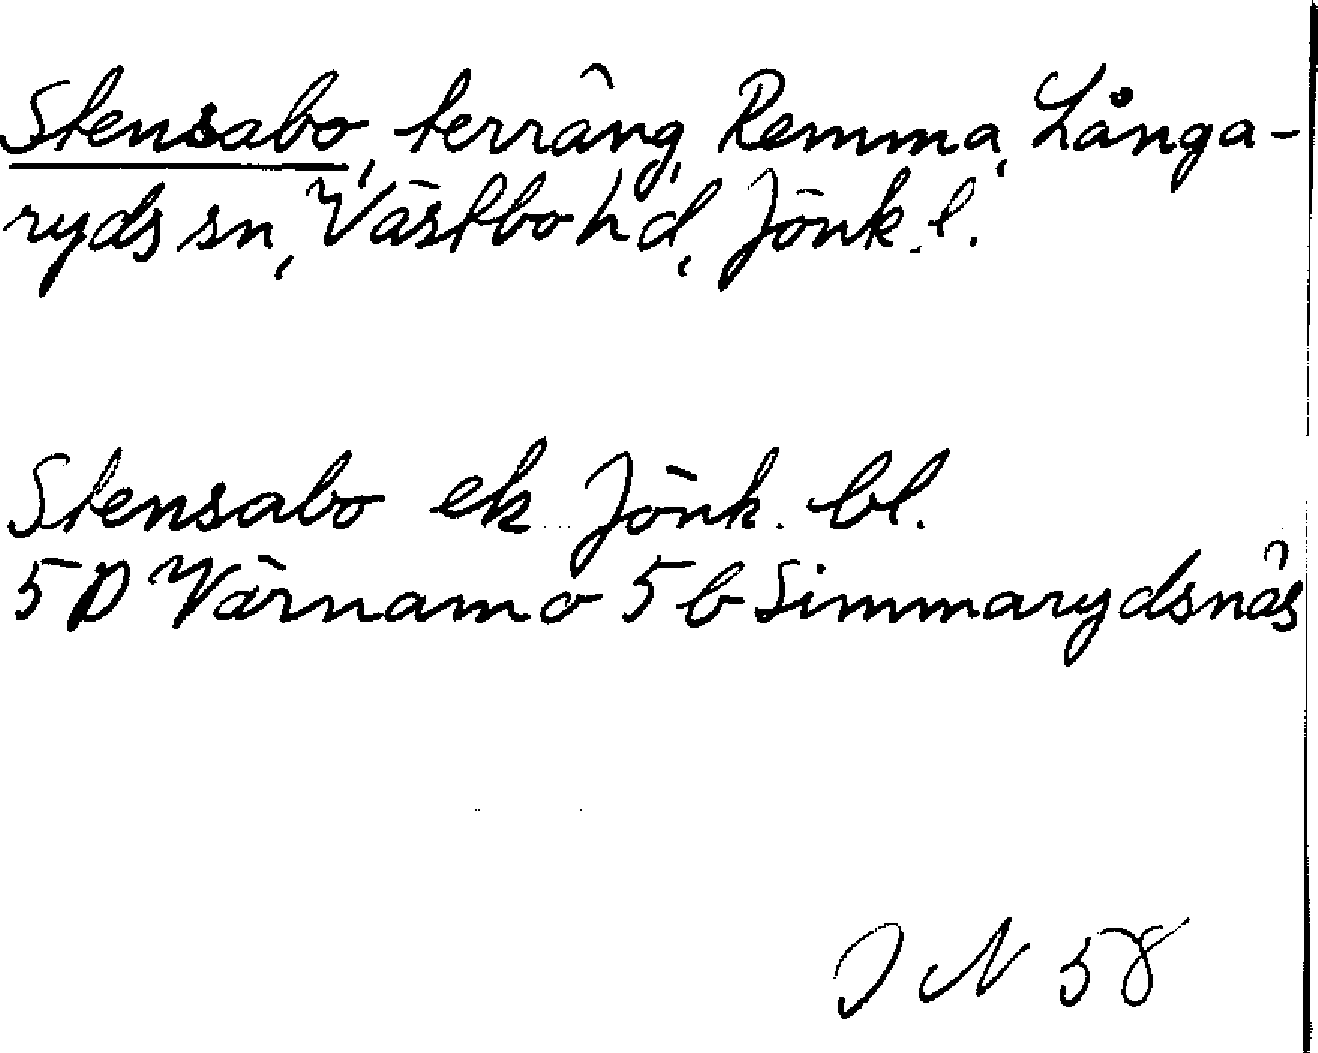 Stensabo, terräng, Remma, Långa-
ryds sn, Västbo hd, Jönk. l.
Stensabo ek Jönk. bl.
5D Värnamo 5b Simmarydsnäs
J N 58